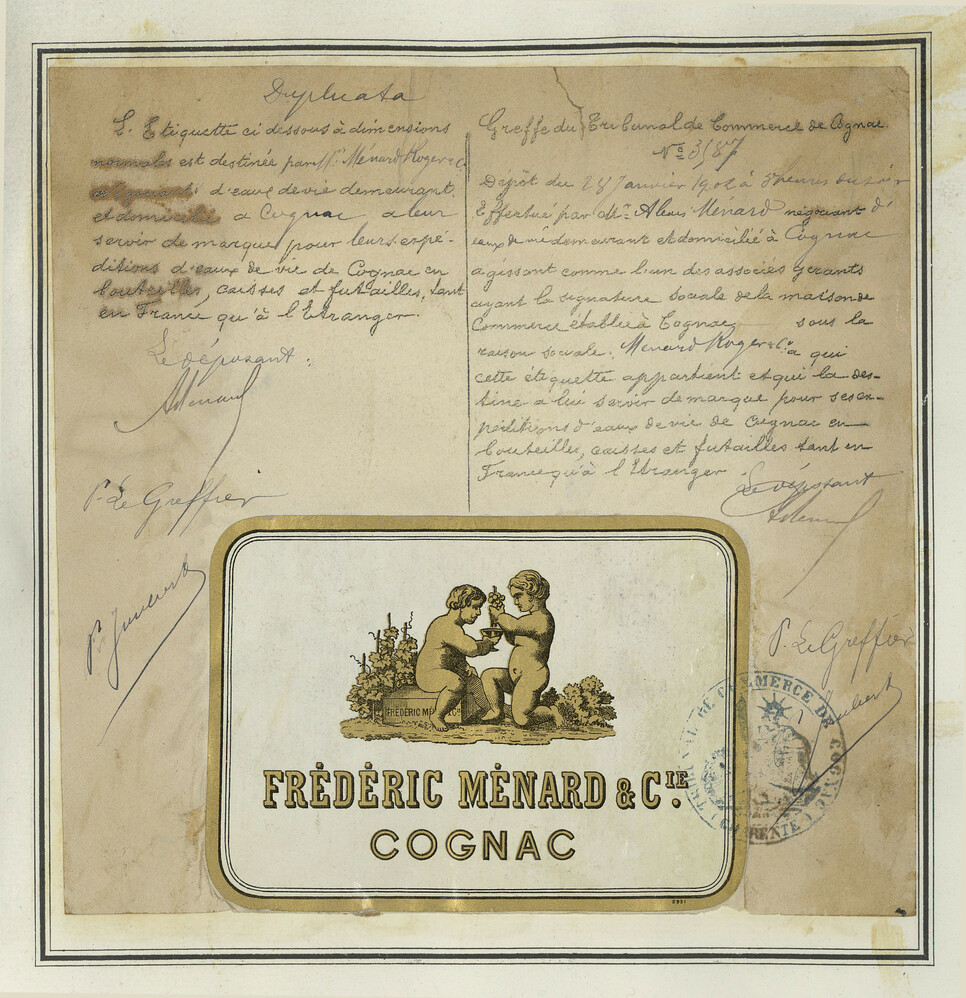 Duplicata
L'Etiquette ci dessous à dimensions
normales est destinée par Mr. Ménard Roger & Co
d'eaux de vie demeurant
et domicilié à Cognac à leur
servir de marque pour leurs expé-
ditions d'eaux de vie de Cognac en
bouteilles, caisses et futailles, tant
en France qu'à l'Etranger.
Le déposant :
AMénard
P. Le Greffier
P. Joubert
Greffe du Tribunal de Commerce de Cognac.
No 3187
Dépôt du 28 Janvier à 3 heures du soir
Effectué par Mr. Alexis Ménard négociant d'
eaux de vie demeurant et domicilié à Cognac
agissant comme l'un des associés gérants
ayant la signature sociale de la maison de
Commerce établie à Cognac sous la
raison sociale: Ménard Roger & Co. à qui
cette étiquette appartient et qui la des-
tine à lui servir de marque pour ses ex-
péditions d'eaux de vie de Cognac en
bouteilles, caisses et futailles tant en
France qu'à l'Etranger
Le déposant
AMénard
P. Le Greffier
Joubert
TRIBUNAL DE COMMERCE DE COGNAC
(CHARENTE)
FRÉDÉRIC MÉ & Co
FRÉDÉRIC MÉNARD & CIE.
COGNAC